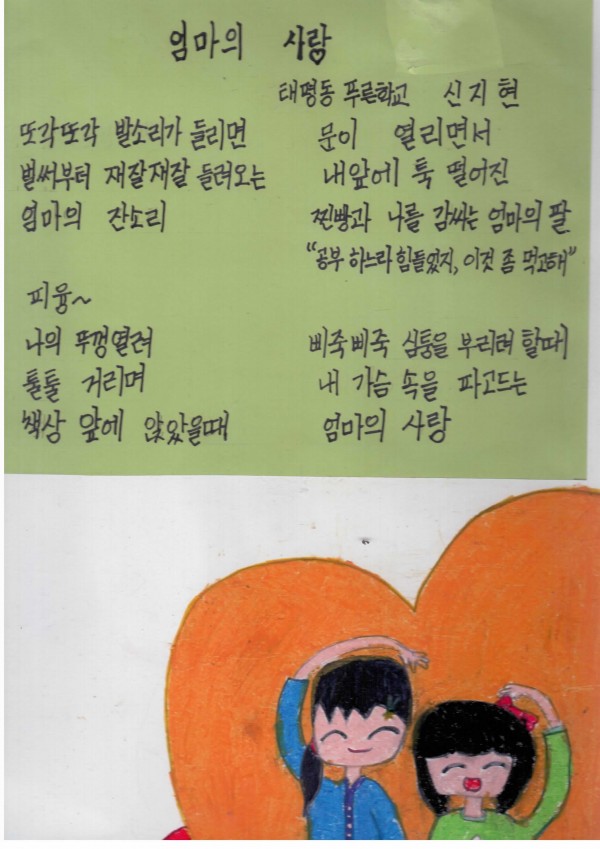 엄마의 사랑
태평동 푸른학교 신지현
또각또각 발소리가 들리면
벌써부터 재잘재잘 들려오는
엄마의 잔소리
피융~
나의 뚜껑열려
툴툴 거리며
책상 앞에 앉았을때
문이 열리면서
내앞에 툭 떨어진
찐빵과 나를 감싸는 엄마의 팔
"공부 하느라 힘들었지, 이것 좀 먹고해"
삐죽삐죽 심퉁을 부리려 할때
내 가슴 속을 파고드는
엄마의 사랑